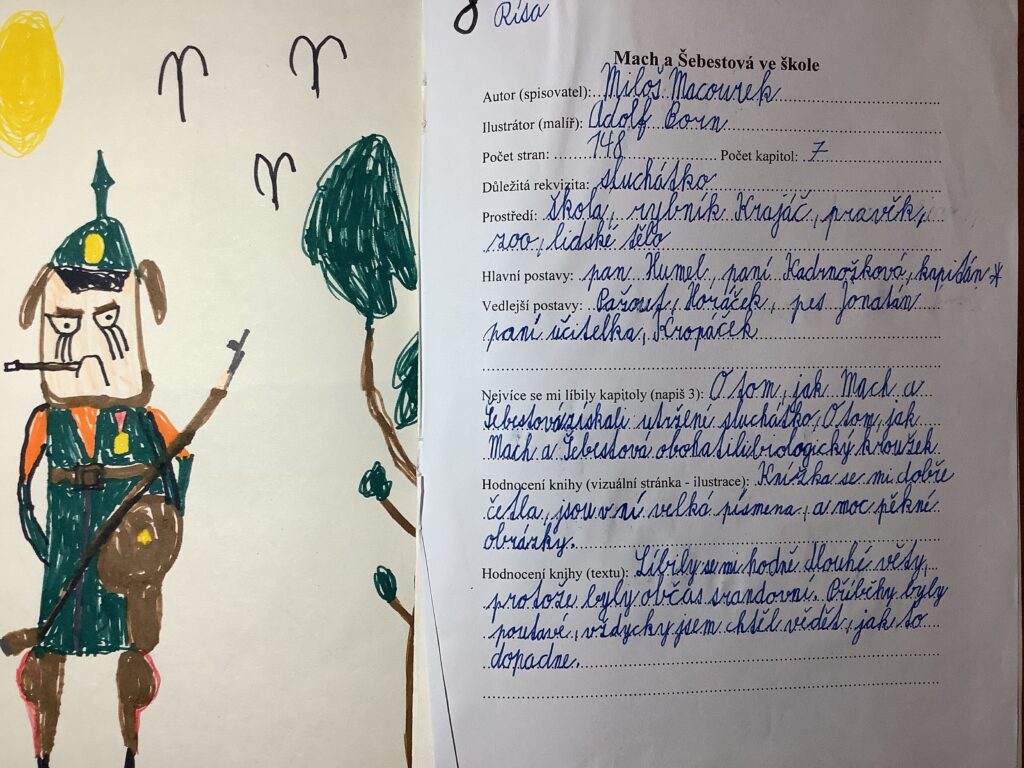 8 Ríša
Mach a Šebestová ve škole
Autor (spisovatel): Miloš Macourek
Ilustrátor (malíř): Adolf Born
Počet stran: 148 Počet kapitol: 7
Důležitá rekvizita: sluchátko
Prostředí: škola, rybník Krajáč, pravěk,
zoo, lidské tělo
Hlavní postavy: pan Humel, paní Kadrnožková, kapitán *
Vedlejší postavy: Pažout, Horáček, pes Jonatán
paní učitelka, Kropáček
Nejvíce se mi líbily kapitoly (napiš 3): O tom, jak Mach a
Šebestová získali utržení sluchátko, O tom, jak
Mach a Šebestová obohatili biologický kroužek.
Hodnocení knihy (vizuální stránka - ilustrace): Knížka se mi dobře
četla, jsou v ní velká písmena, a moc pěkné
obrázky.
Hodnocení knihy (textu): Líbily se mi hodně dlouhé věty,
protože byly občas srandovní. Příběhy byly
poutavé, vždycky jsem chtěl vědět, jak to
dopadne.